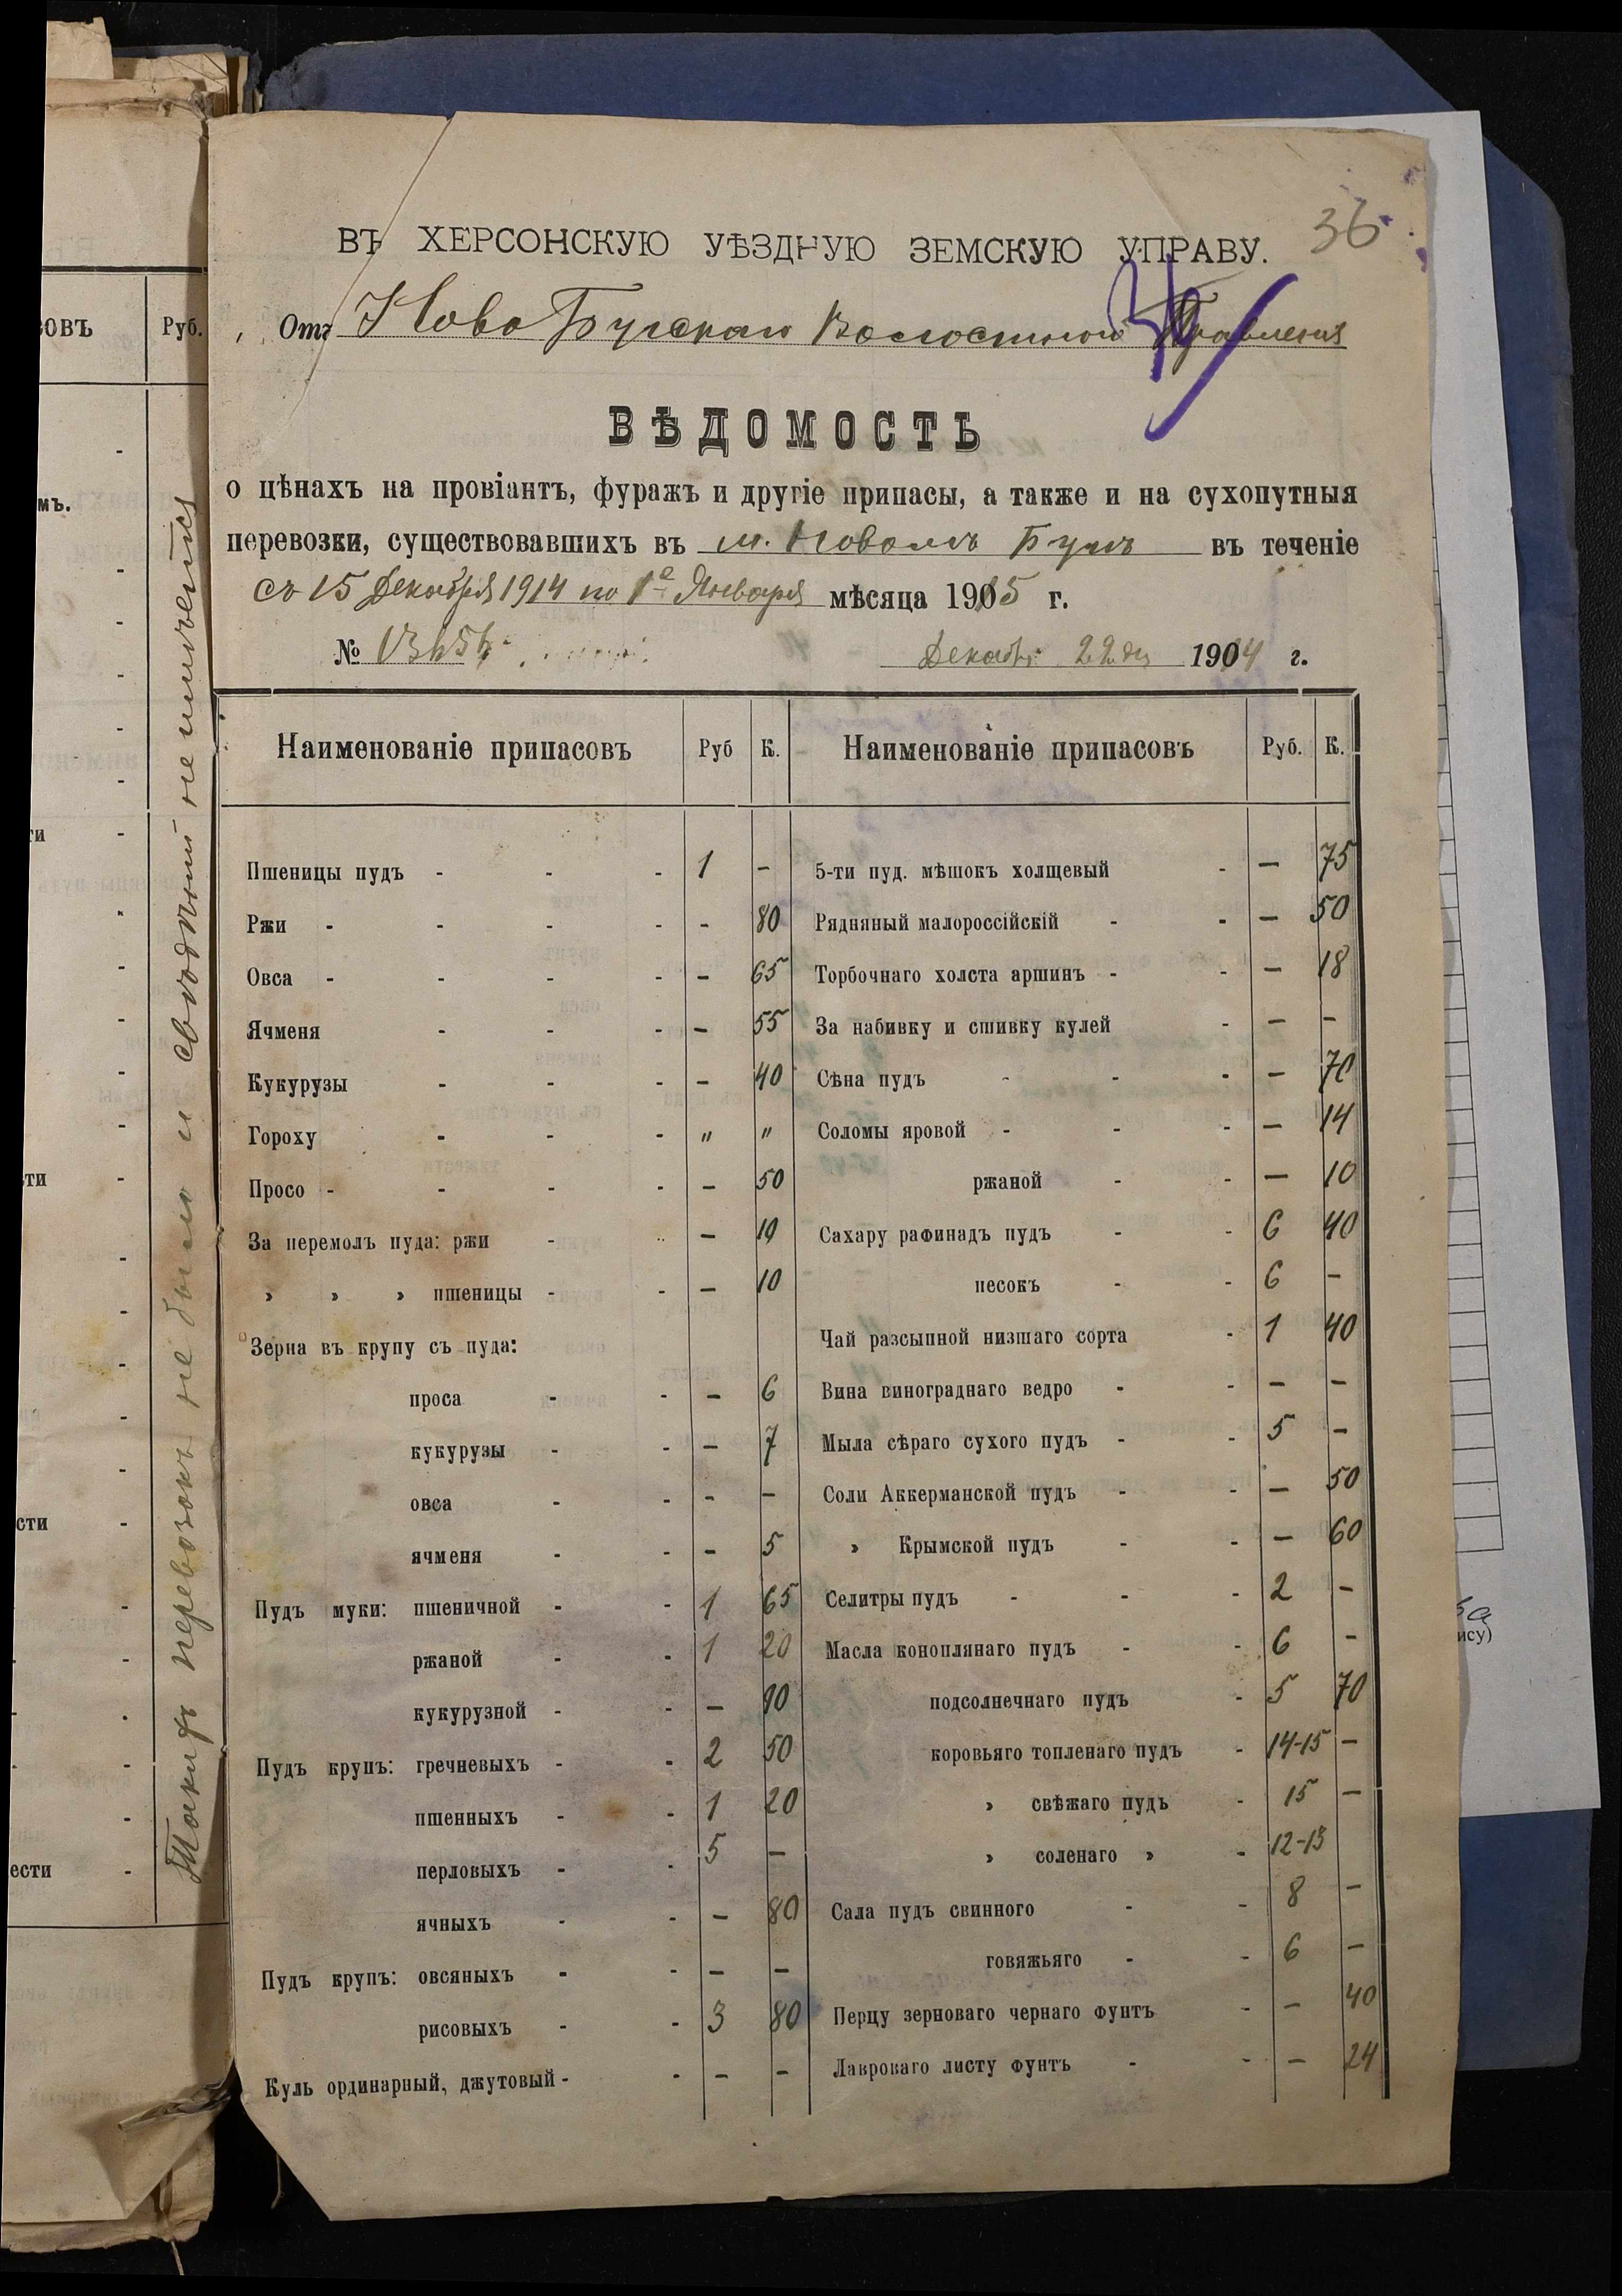 36
ВЪ ХЕРСОНСКУЮ УѢЗДНУЮ ЗЕМСКУЮ УПРАВУ.
Отъ Ново Бугскаго Волостного Правления
ВѢДОМОСТЬ
о цѣнахъ на провіантъ, фуражъ и другіе припасы, а также и на сухопутныя
перевозки, существовавшихъ въ м. Новомъ Бугѣ въ теченіе
съ 15 Декабря 1914 по 1е Января мѣсяца 1915 г.
№ Декабр. 22 дн 1914 г.
Наименованіе припасовъ Руб К. Наименованіе припасовъ Руб. К.
Пшеницы пудъ - - - 1 – 5-ти пуд. мѣшокъ холщевый - – 75
Ржи - - - - - 80 Рядняный малороссійскій - - – 50
Овса - - - - – 65 Торбочнаго холста аршинъ - - – 18
Ячменя - - - – 55 За набивку и сшивку кулей - – -
Кукурузы - - - – 40 Сѣна пудъ - - - – 70
Гороху - - - " " Соломы яровой - - - – 14
Просо - - - - – 50 ржаной - - – 10
За перемолъ пуда: ржи - - – 10 Сахару рафинадъ пудъ - - 6 40
» » » пшеницы - - – 10 песокъ - - 6 –
Зерна въ крупу съ пуда: Чай разсыпной низшаго сорта - 1 40
проса - - – 6 Вина винограднаго ведро - - – –
кукурузы - - – 7 Мыла сѣраго сухого пудъ - - 5 –
овса - - - – Соли Аккерманской пудъ - - – 50
ячменя - - – 5 » Крымской пудъ - - – 60
Пудъ муки: пшеничной - - 1 65 Селитры пудъ - - - 2 –
ржаной - - 1 20 Масла коноплянаго пудъ - - 6 -
кукурузной - - – 90 подсолнечнаго пудъ - 5 70
Пудъ крупъ: гречневыхъ - - 2 50 коровьяго топленаго пудъ - 14-15 –
пшенныхъ - - 1 20 » свѣжаго пудъ - 15 –
перловыхъ - - 5 – » соленаго » - 12-13
ячныхъ - - – 80 Сала пудъ свинного - - 8 –
Пудъ крупъ: овсяныхъ - - – – говяжьяго - - 6 –
рисовыхъ - - 3 80 Перцу зерноваго чернаго фунтъ - – 40
Куль ординарный, джутовый - - – – Лавроваго листу фунтъ - - – 24
овъ Руб.
мъ.
ти
сти
ести
Такихъ перевозокъ не было и свѣдѣній не имѣется
ису)